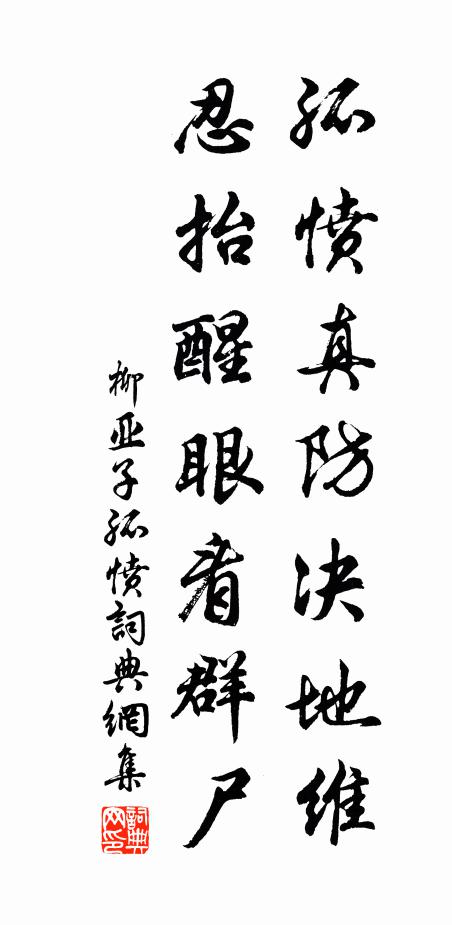 孤愤真防决地维
忍抬醒眼看群尸
柳亚子孤愤詞典網集
詞典网印